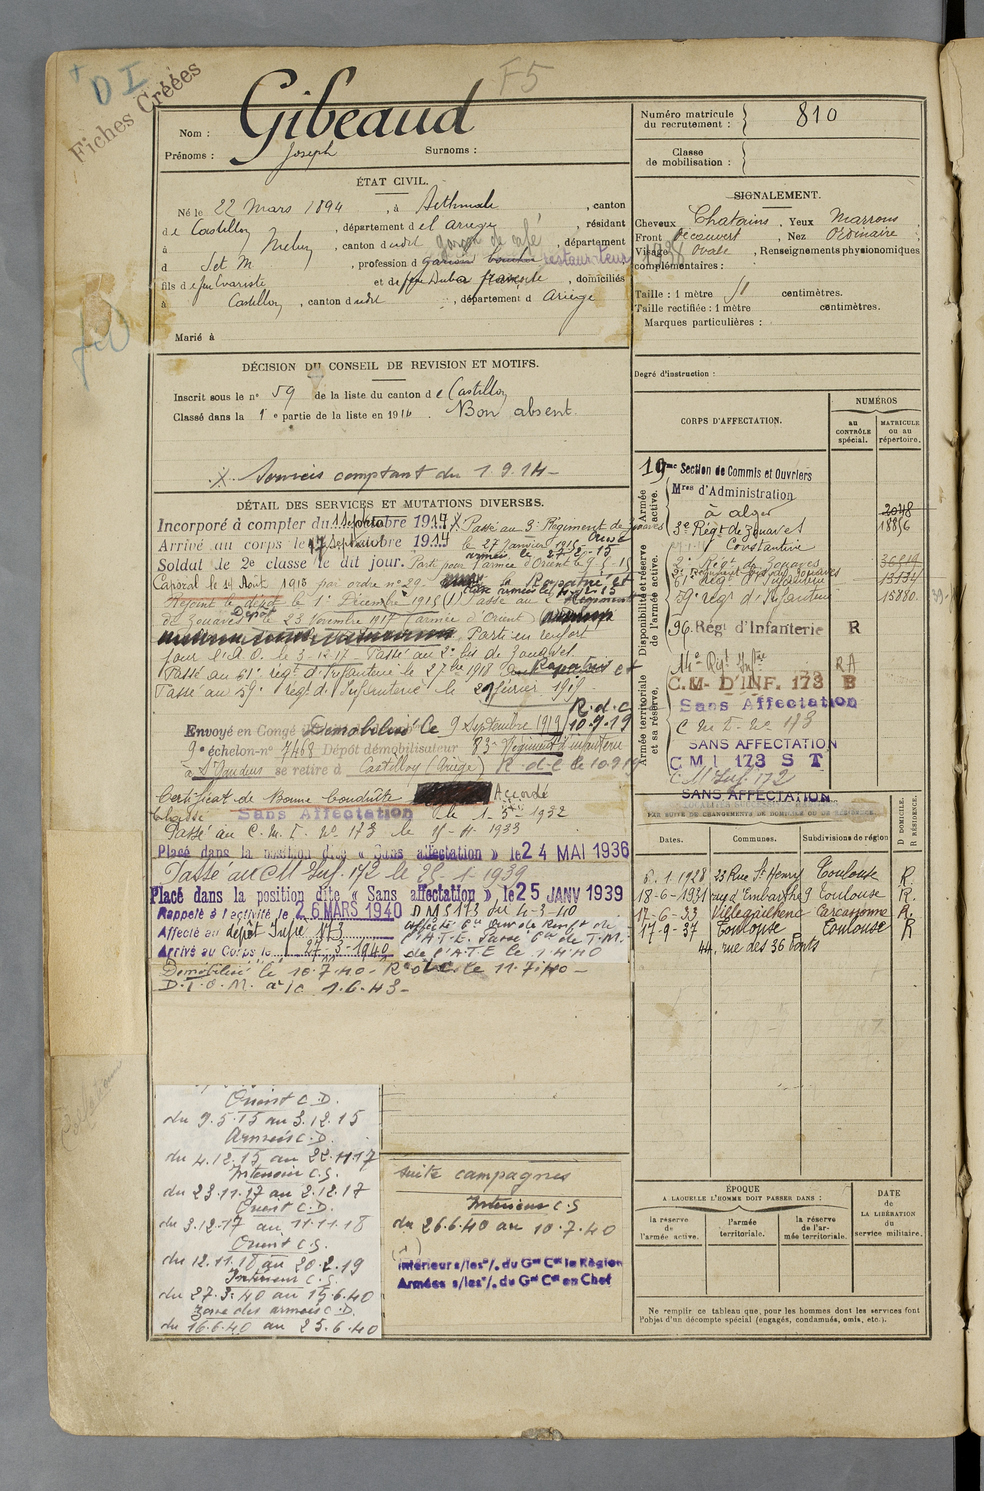 + D I
F5
Fiches Créées
Nom : Gibeaud
Prénoms : Joseph Surnoms :
Numéro matricule du recrutement : 810
Classe de mobilisation :
ÉTAT CIVIL.
Né le 22 Mars 1894, à , canton
de Castillon, département d el Ariège, résidant
à , canton dudit , département
d , profession d garçon de café restaurateur
fils de feu Evariste et de , domiciliés
à Castillon, canton dudit , département d Ariège
Marié à
SIGNALEMENT.
Cheveux Chatains, Yeux Marrons
Front Découvert, Nez Ordinaire
Visage Ovale, Renseignements physionomiques
complémentaires :
Taille : 1 mètre 51 centimètres.
Taille rectifiée : 1 mètre centimètres.
Marques particulières :
Degré d'instruction :
DÉCISION DU CONSEIL DE REVISION ET MOTIFS.
Inscrit sous le n° 59 de la liste du canton de Castillon
Classé dans la 1e partie de la liste en 1914. Bon absent.
X Services comptant du 1.9.14-
DÉTAIL DES SERVICES ET MUTATIONS DIVERSES.
Incorporé à compter du septembre 1914 X Passé au 3e Régiment de Zouaves
Arrivé au corps le 17 septembre 1914 le 27 Janvier 1915
armée le 27-2-15
Soldat de 2e classe le dit jour. Parti pour l'armée d'Orient le 9-5-15
Caporal le 14 Août 1915 par ordre n° 29. Rapatrié et
Rejoint le dépôt le 1er Décembre 1915 (1) Passé au Régiment
de Zouaves Dépôt le 23 Novembre 1917 (armée d'Orient)
Parti en renfort
pour l'A.O. le 3-12-17 Passé au 2e bis de Zouaves
Passé au 61e régt d'Infanterie le 27 bre 1918 Rapatrié et
Passé au 59e régt d'Infanterie le 29 février 1919
R.d.C
Envoyé en Congé Démobilisé le 9 Septembre 1919 10-9-19
9e échelon-n° 7468 Dépôt démobilisateur 83e Régiment d'Infanterie
à St Gaudens se retire d Castillon (Ariège) R-d-C le 10-9-19
Certificat de Bonne Conduite Accordé
Classé Sans Affectation le 1-5-1932
Passé au C.M.I. N° 173 le 1933
Placé dans la position dite « Sans affectation » le 24 MAI 1936
Passé au CM Inf. 172 le 1-1939
Placé dans la position dite « Sans affectation » le 25 JANV 1939
Rappelé à l'activité le 26 MARS 1940 DMS173 du 4-3-40
Affecté au dépôt Infie 173
Arrivé au Corps le 27-3-1940
de l'A.T.E le 1-4-40
Démobilisé le 10.7.40- Rdole le 11.7.40-
D.I.O.M. 1.6.43-
CORPS D'AFFECTATION.
NUMÉROS
au CONTRÔLE spécial.
MATRICULE ou au répertoire.
Armée active.
Disponibilité et réserve de l'armée active.
Armée territoriale et sa réserve.
19me Section de Commis et Ouvriers
Mres d'Administration
à alger
3e Régt de Zouaves 18856
Constantine
2e Régt de Zouaves
61e Régt d'Infanterie 13134
59e régt d'Infanterie 15880
96. Régt d'Infanterie R
14e Régt Infrie RA
C.M- D'INF. 173 B
Sans Affectation
C M I N° 173
SANS AFFECTATION
C M I 173 S T
C M Inf. 172
SANS AFFECTATION
LOCALITÉS SUCCESSIVES HABITÉES
PAR SUITE DE CHANGEMENTS DE DOMICILE OU DE RÉSIDENCE.
D. DOMICILE.
R. RÉSIDENCE.
Dates. Communes. Subdivisions de région
5.1.1928 23 Rue St Henry Toulouse R.
18-6-1931 rue d'Embarthe 9 Toulouse R.
17-6-33 Villegailhenc Carcassonne R.
17-9-37 Toulouse Toulouse R
44, rue des 36 Ponts
Orient C.D.
du 9.5.15 au 3.12.15
Armées C.D.
du 4.12.15 au 22.11.17
Intérieur C.S.
du 23.11.17 au 2.12.17
Orient C.D.
du 3.12.17 au 11.11.18
Orient C.S.
du 12.11.18 au 20.2.19
Intérieur C.S.
du 27.3.40 au 15.6.40
Zone des armées C.D.
du 16.6.40 au 25.6.40
suite campagnes
Intérieur C.S
du 26.6.40 au 10.7.40
(1)
Intérieur s/les °/. du Gal Ct la Région
Armées s/les °/. du Gal Ct en Chef
ÉPOQUE
A LAQUELLE L'HOMME DOIT PASSER DANS :
la réserve de l'armée active.
l'armée territoriale.
la réserve de l'armée territoriale.
DATE de LA LIBÉRATION du service militaire.
Ne remplir ce tableau que pour les hommes dont les services font
l'objet d'un décompte spécial (engagés, condamnés, omis, etc.).